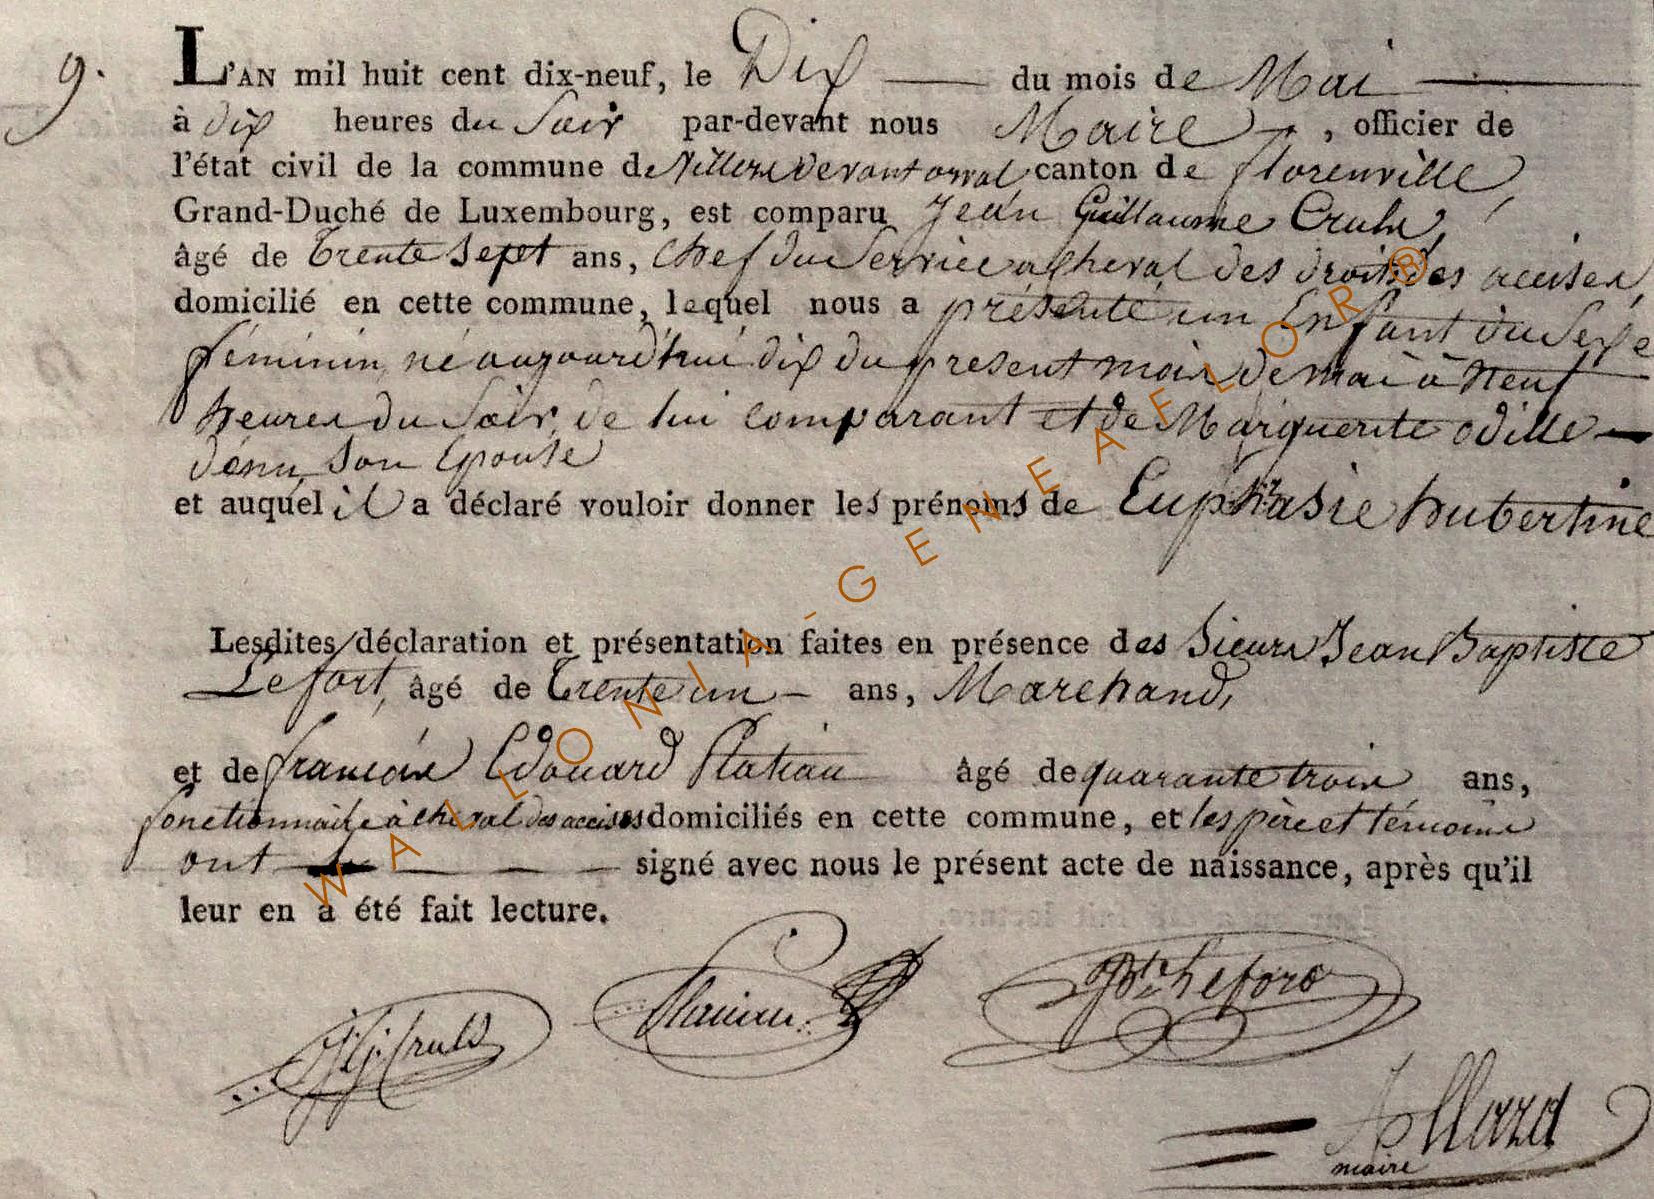 9.
L'AN mil huit cent dix-neuf, le Dix du mois de Mai
à dix heures du Soir par-devant nous Maire, officier de
l'état civil de la commune de Villers devant orval canton de florenville
Grand-Duché de Luxembourg, est comparu Jean Guillaume Cruls,
âgé de Trente Sept ans, Chef du Service a cheval des droits des accises,
domicilié en cette commune, lequel nous a présenté un Enfant du Sexe
féminin, né aujourd'hui dix du present mois de mai à Neuf
heures du Soir, de lui comparant et de Marguerite odille
son Epouse
et auquel il a déclaré vouloir donner les prénoms de Euphrasie hubertine
Lesdites déclaration et présentation faites en présence des Sieurs Jean Baptiste
Lefort, âgé de Trente un ans, Marchand,
et de francois Edouard âgé de quarante trois ans,
fonctionnaire à cheval des accises domiciliés en cette commune, et les père et témoins
ont signé avec nous le présent acte de naissance, après qu'il
leur en a été fait lecture.
J G Cruls
Jbte Lefort
Allard
maire
WALLONIA-GENEAFLOR®